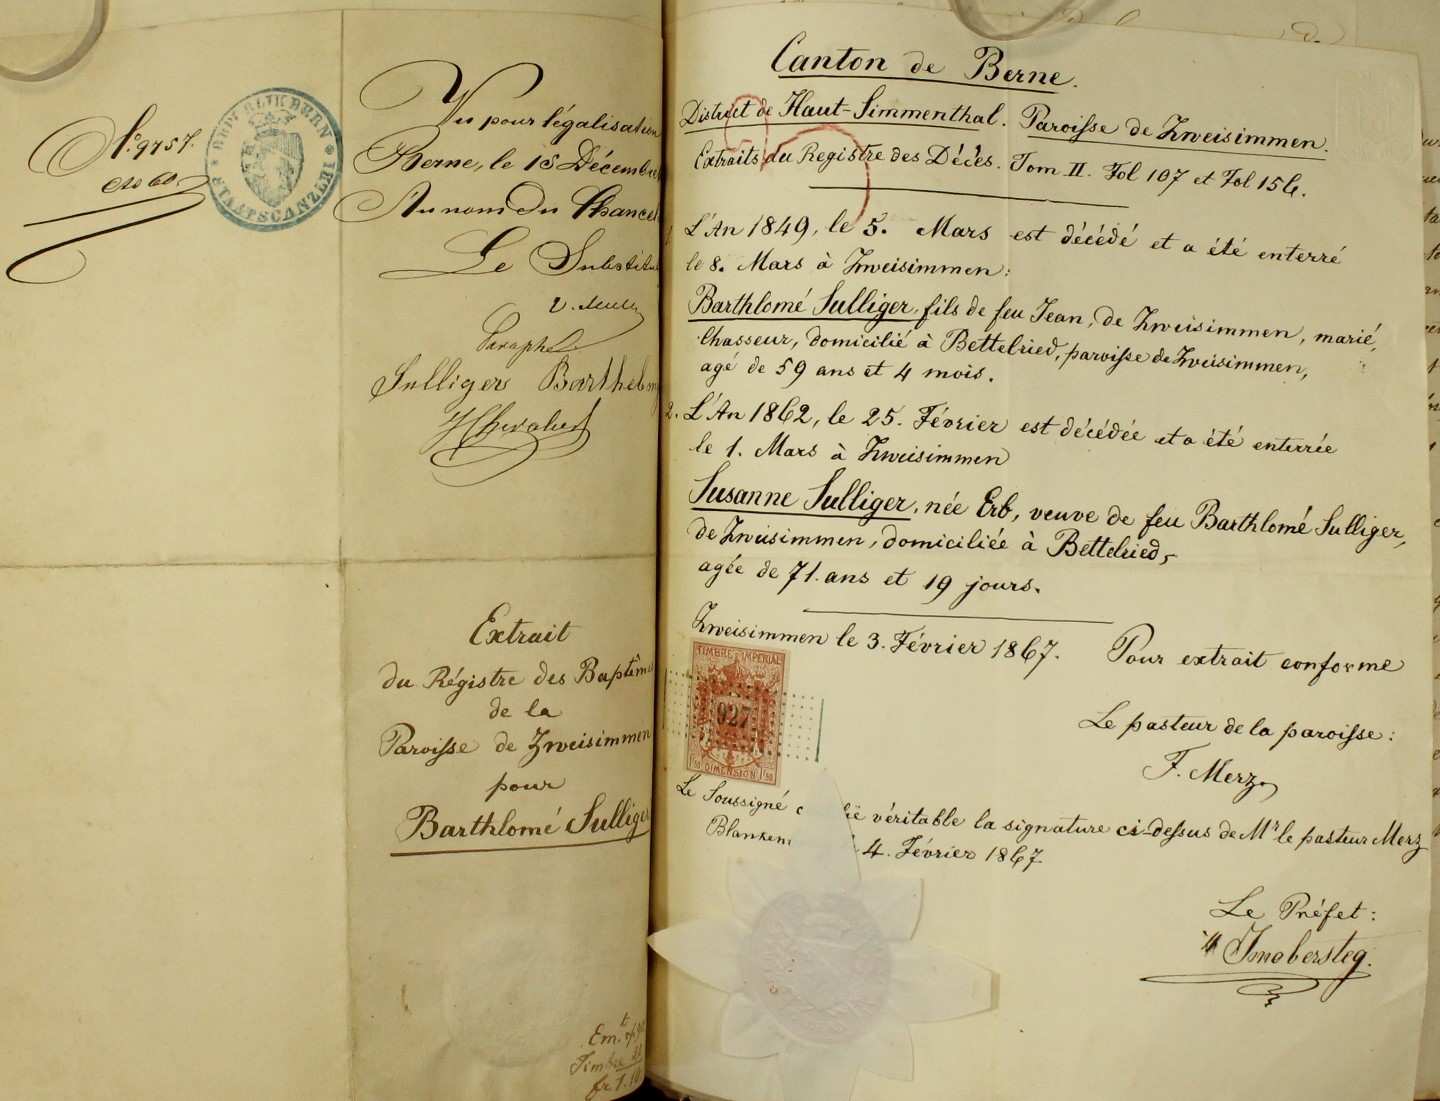 N.° 9757.
REPUBLIK BERN
STAATSCANZLEI
Vu pour légalisation
Berne, le 15 Décembre
Au nom du Chancel
Le Substitu
Paraphe
Sulliger Barthelomy
Extrait
du Régistre des Baptêmes
de la
Paroisse de Zweisimmen
pour
Barthlomé Sulliger
Em.t
Timbre
fr 1.10
Canton de Berne.
District de Haut-Simmenthal. Paroisse de Zweisimmen.
Extraits du Registre des Décès. Tom II. Fol 107 et Fol 154.
1. L'An 1849, le 5. Mars est décédé et a été enterré
le 8. Mars à Zweisimmen:
Barthlomé Sulliger, fils de feu Jean, de Zweisimmen, marié,
Chasseur, domicilié à Bettelried, paroisse de Zweisimmen,
agé de 59 ans et 4 mois.
2. L'An 1862, le 25. Février est décédée et a été enterrée
le 1. Mars à Zweisimmen
Susanne Sulliger, née Erb, veuve de feu Barthlomé Sulliger,
de Zweisimmen, domiciliée à Bettelried,
agée de 71. ans et 19 jours.
Zweisimmen le 3. Février 1867. Pour extrait conforme
TIMBRE IMPÉRIAL
927
DIMENSION
Le pasteur de la paroisse:
F. Merz
Le Soussigné véritable la signature ci-dessus de Mr le pasteur Merz
Blanken 4. Février 1867
Le Préfet:
Imobersteg.